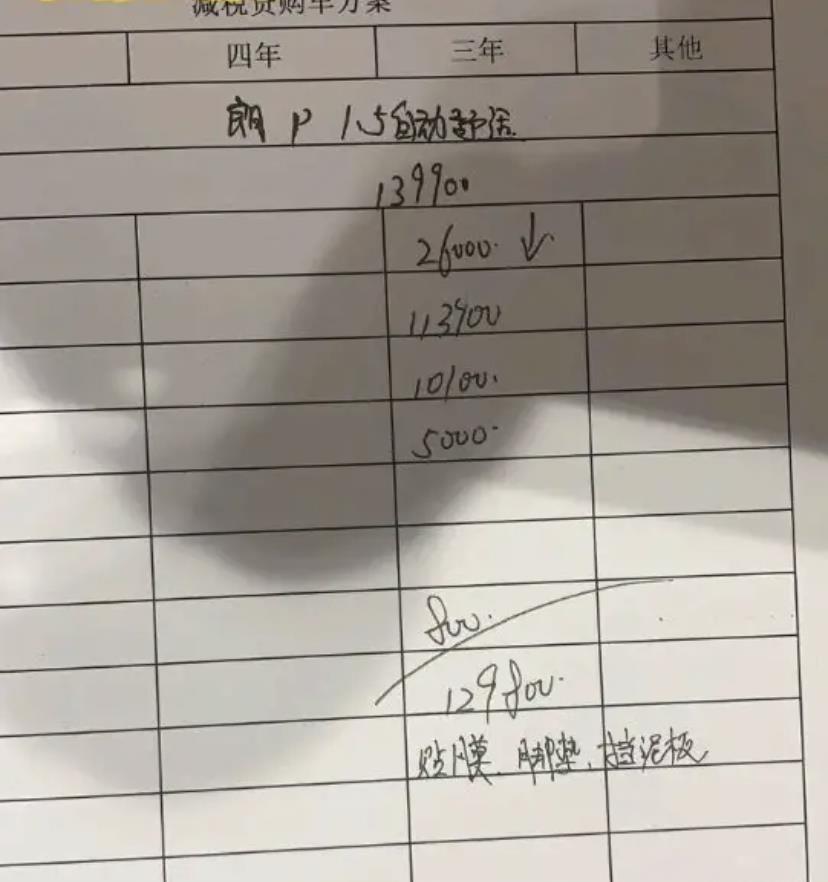 减税费购车方案
四年 三年 其他
朗 P 1.5自动舒适
139900
26000. ↓
113900
10100.
5000.
800.
129800.
贴膜、脚垫、挡泥板